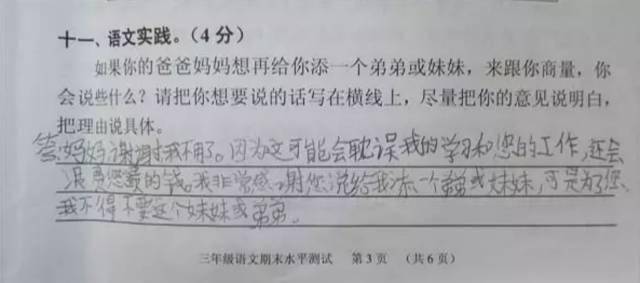 十一、语文实践。（4分）
如果你的爸爸妈妈想再给你添一个弟弟或妹妹，来跟你商量，你
会说些什么？请把你想要说的话写在横线上，尽量把你的意见说明白，
把理由说具体。
答:妈妈谢谢我不用了。因为这可能会耽误我的学习和您的工作，还会
浪费您的钱。我非常感谢您说给我添一个弟弟或妹妹，可是为了您，
我不得不要这个妹妹或弟弟。
三年级语文期末水平测试 第3页 （共6页）